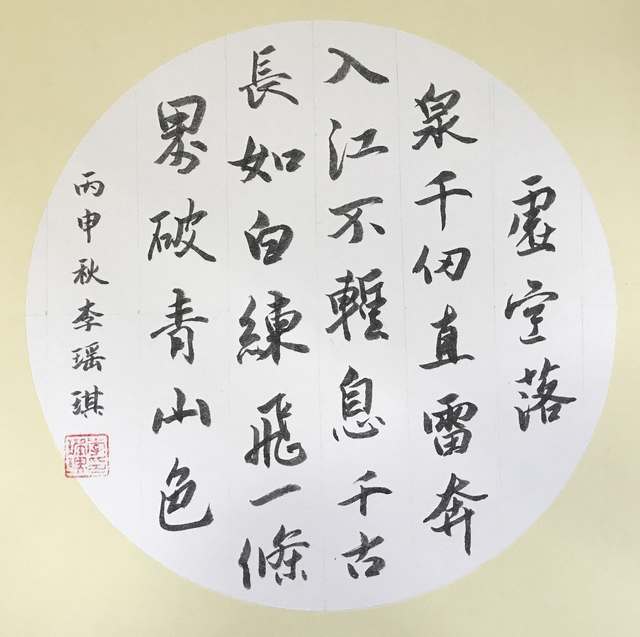 虛空落
泉千仞直雷奔
入江不暫息千古
長如白練飛一條
界破青山色
丙申秋李瑶琪